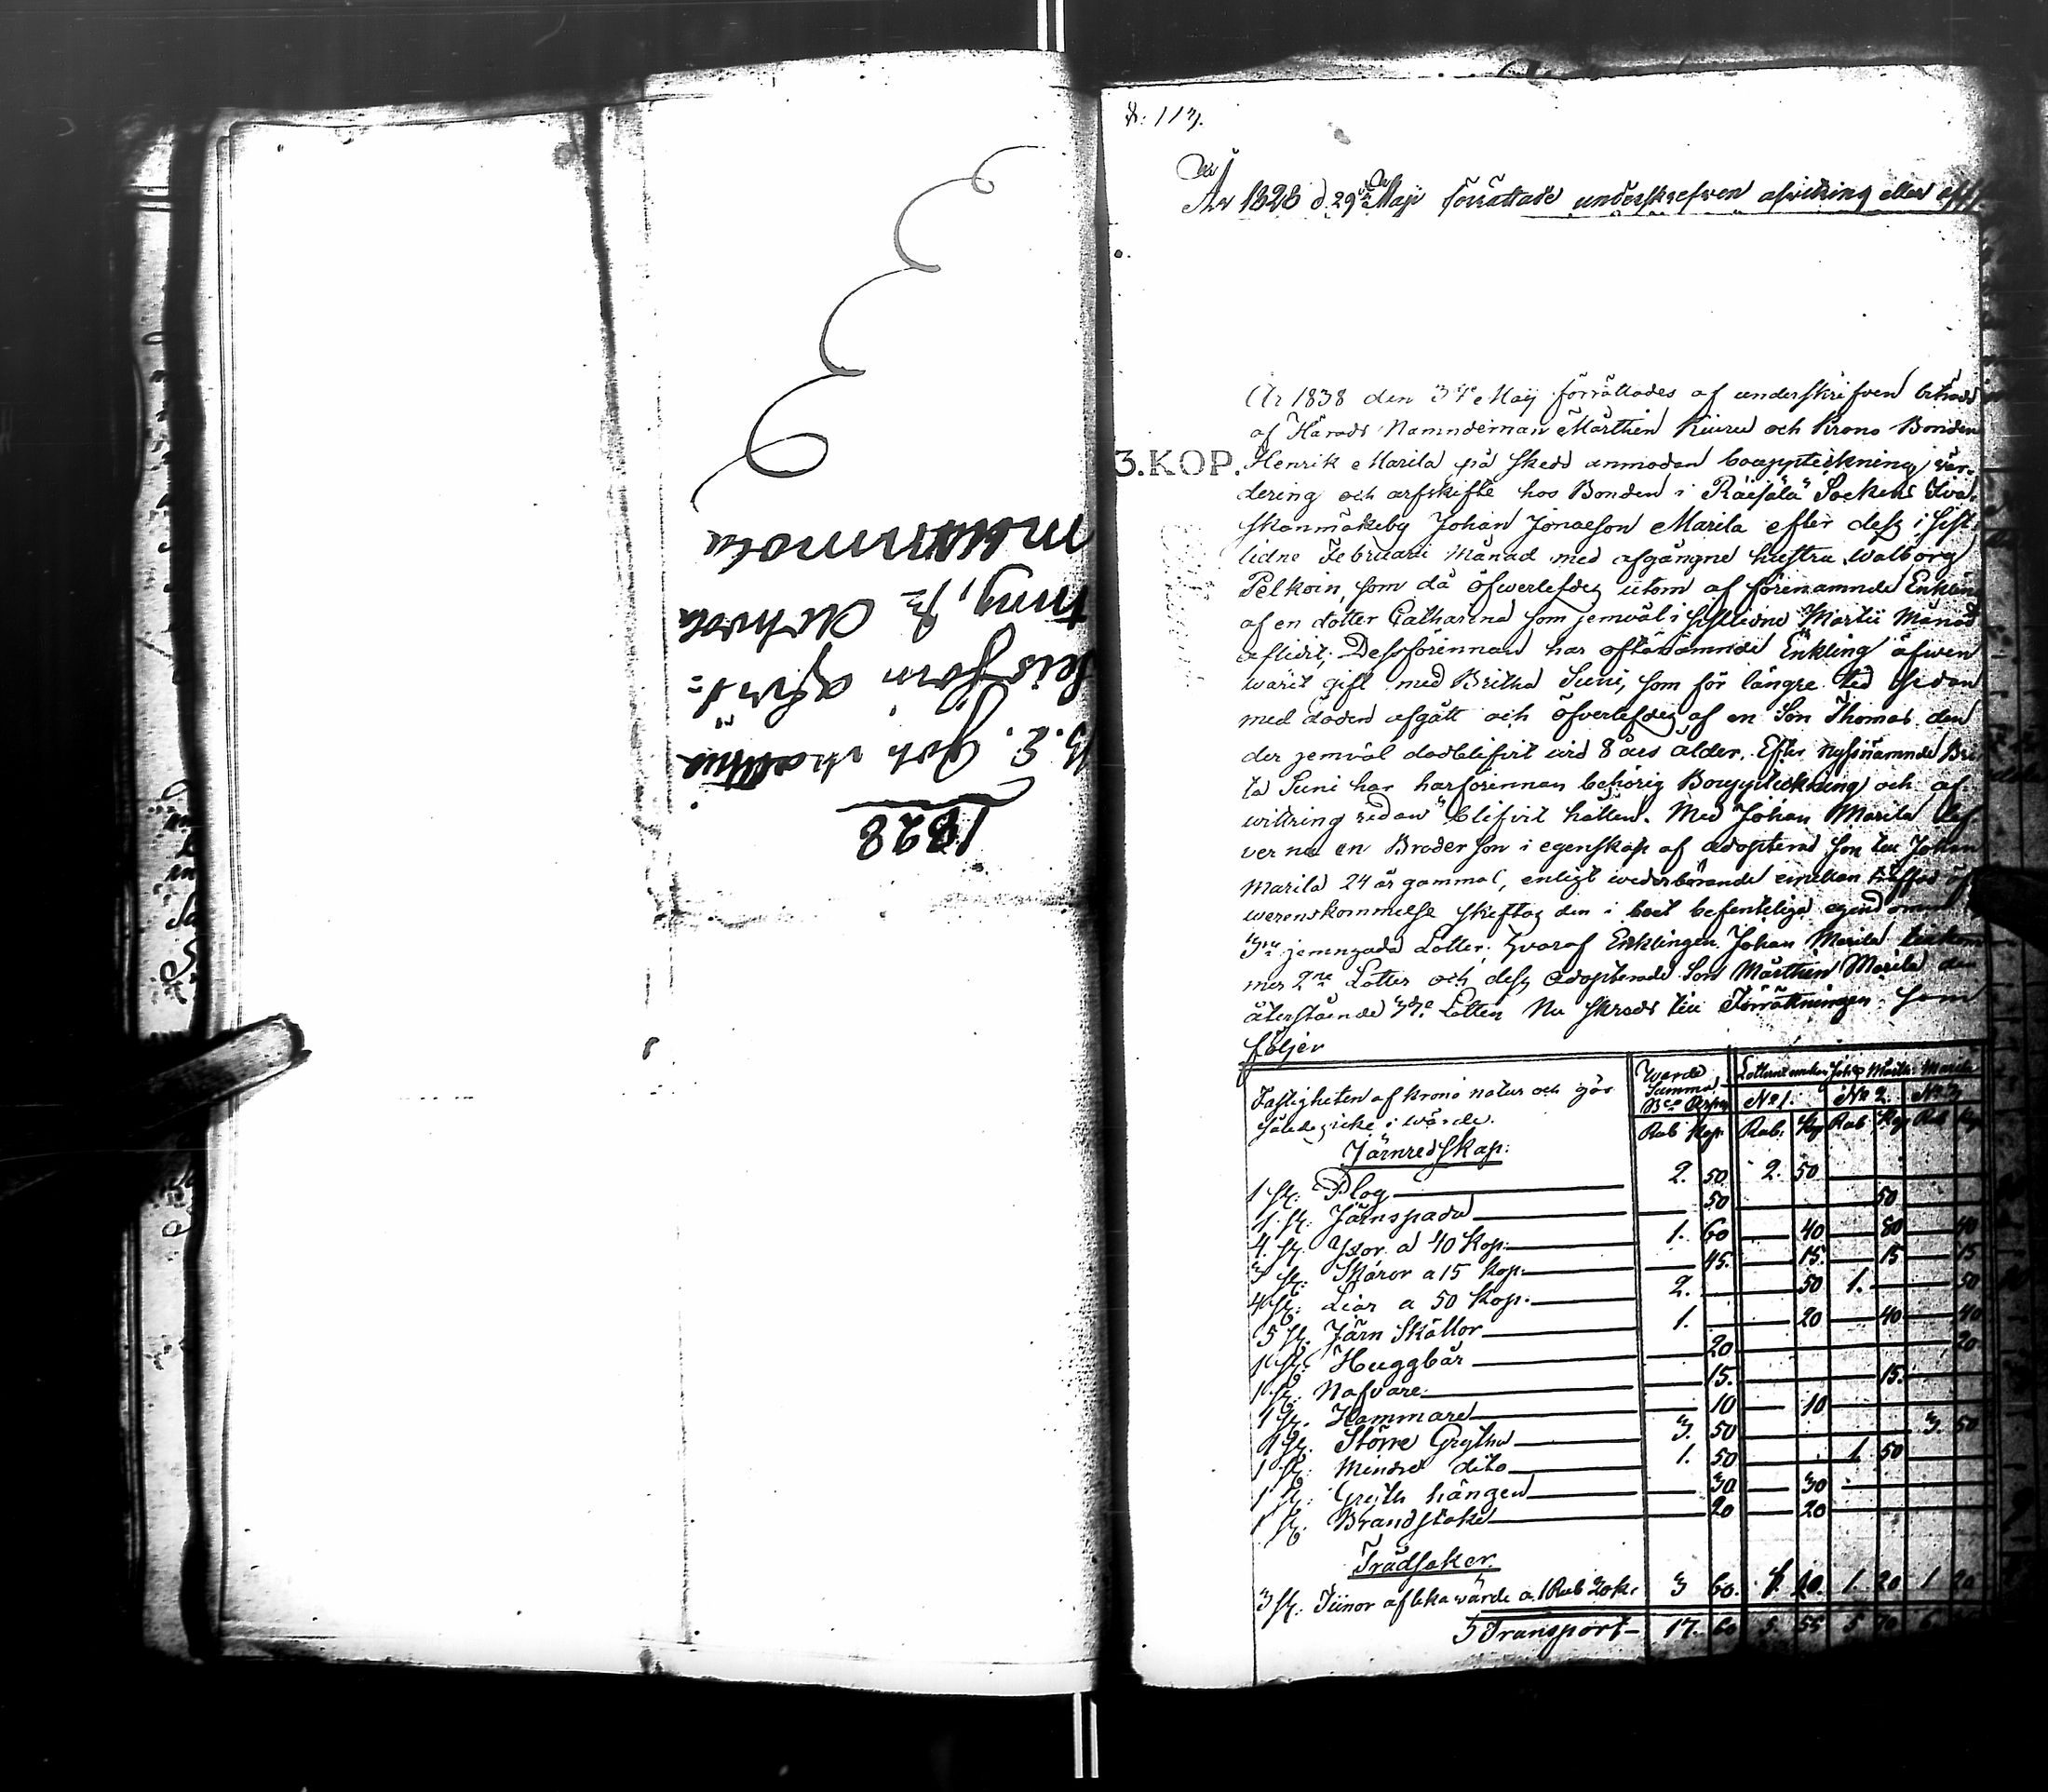 1828
B. E. Joh
afvit=
tring,
N: 113.
År 1828 d 29de Maji förrättade underskrefven afvittring eller
År 1838 den 3de Maij förrättades af underskrifven biträdd
af Härads Nämndeman Mårthen Kiuru och Krono Bonden
3.KOP.
Henrik Marila på skedd anmodan bouppteckning, vär=
dering och arfskifte hos Bonden i Räisälä Sockens
by Johan Jonasson Marila efter dess i sist=
lidne Februarii Månad med afgångne hustru Walborg
Pelkoin, som då öfwerlefdes utom af förenämnde Enkling
af en dotter Catharina som jemväl i sistlidne Martii Månad
aflidit; Dessförinnan har oftanämnde Enkling äfwen
warit gift med Britha Suni, som för längre tid sedan
med döden afgått och öfverlefdes af en Son Thomas den
der jemväl dödblifvit vid 8 års ålder. Efter nyssnämnde Bri=
ta Suni har härförinnan behörig Bouppteckning och af=
wittring redan blifvit hållen. Med Johan Marila lef=
ver nu en Broder son i egenskap af adopterad son till Johan
Marila 24 år gammal, enligt wederbörande emellan träffad öf=
werenskommelse skiftas den i boet befintliga egendomen i
3ne jemngoda Lotter, hvaraf Enklingen Johan Marila tillkom=
mer 2ne Lotter och dess adopterade Son Mårthen Marila den
återstående 3dje Lotten Nu skreds till Förrättningen som
följer
Fastigheten af krono natur och går Wärde Summa Bco Assign. Lotterne emellan Joh: & Mårth: Marila
således icke i wärde. No 1. No 2. No 3
Järnredskap: Rub Kop. Rub. Kop Rub Kop Rub Kop
1 st: Plog 2. 50 2. 50
1 st. Järnspada 50 50
4. st. Yxor a 40 Kop. 1. 60 40 80 40
3 st: Skäror a 15 Kop. 45. 15. 15 15
4 st: Liar a 50 Kop. 2. 50 1. 50
5 st. Järn Skällor 1. 20 40 40
1 st: Huggbår 20 20
1 st: Nafvare 15. 15.
1 st. Hammare 10 10
1 st. Större Grytha 3. 50 3. 50
1 st: Mindre dito 1. 50 1. 50
1 st: Gryth hängen 30 30
1 st. Brandstake 20 20
Trädsaker.
3 st: Tiinor af lika wärde a 1 Rub 20 k. 3 60. 1. 20. 1. 20 1 20
Transport 17. 60 5. 55 5 70 6